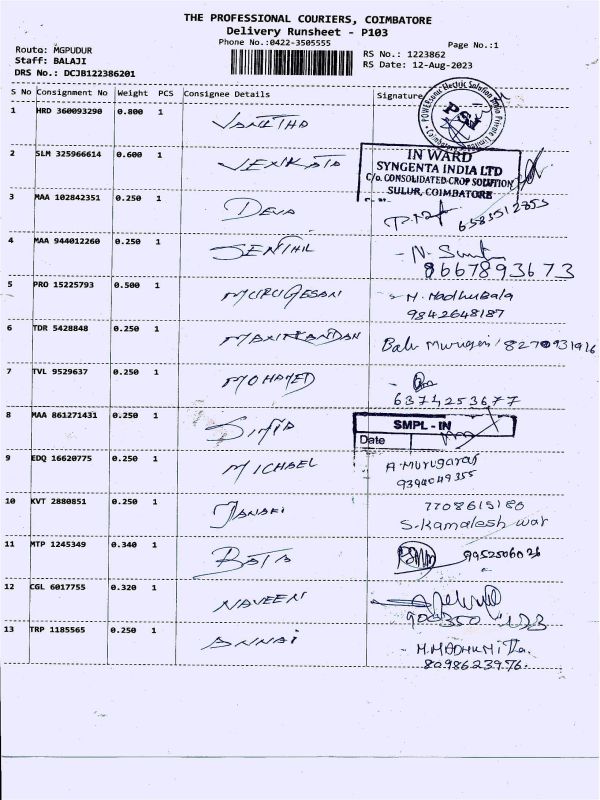 THE PROFESSIONAL COURIERS, COIMBATORE
Delivery Runsheet - P103
Phone No.:0422-3505555
Page No.:1
Route: MGPUDUR
Staff: BALAJI
DRS No.: DCJB122386201
RS No.: 1223862
RS Date: 12-Aug-2023
S No Consignment No Weight PCS Consignee Details Signature
1 HRD 360093290 0.800 1
PSI
2 SLM 325966614 0.600 1 VENKATA
IN WARD
SYNGENTA INDIA LTD
C/o. CONSOLIDATED CROP SOLUTION
SULUR, COIMBATORE
3 MAA 102842351 0.250 1 DEVA
6583512853
4 MAA 944012260 0.250 1 SENTHIL
8667893673
5 PRO 15225793 0.500 1 MURUGESAN M. Madhubala
9842648187
6 TDR 5428848 0.250 1 MANIKANDAN Balu Murugan / 8270931916
7 TVL 9529637 0.250 1 MOHAMED
6374253677
8 MAA 861271431 0.250 1
SMPL - IN
Date
9 EDQ 16620775 0.250 1 MICHAEL A. Murugaraj
9394049355
10 KVT 2880851 0.250 1 JANAKI 7708615180
S. Kamalesh war
11 MTP 1245349 0.340 1 BATA 9952506026
12 CGL 6017755 0.320 1 NAVEEN
13 TRP 1185565 0.250 1 ANNAI M. MADHUMITHA.
8098623976.